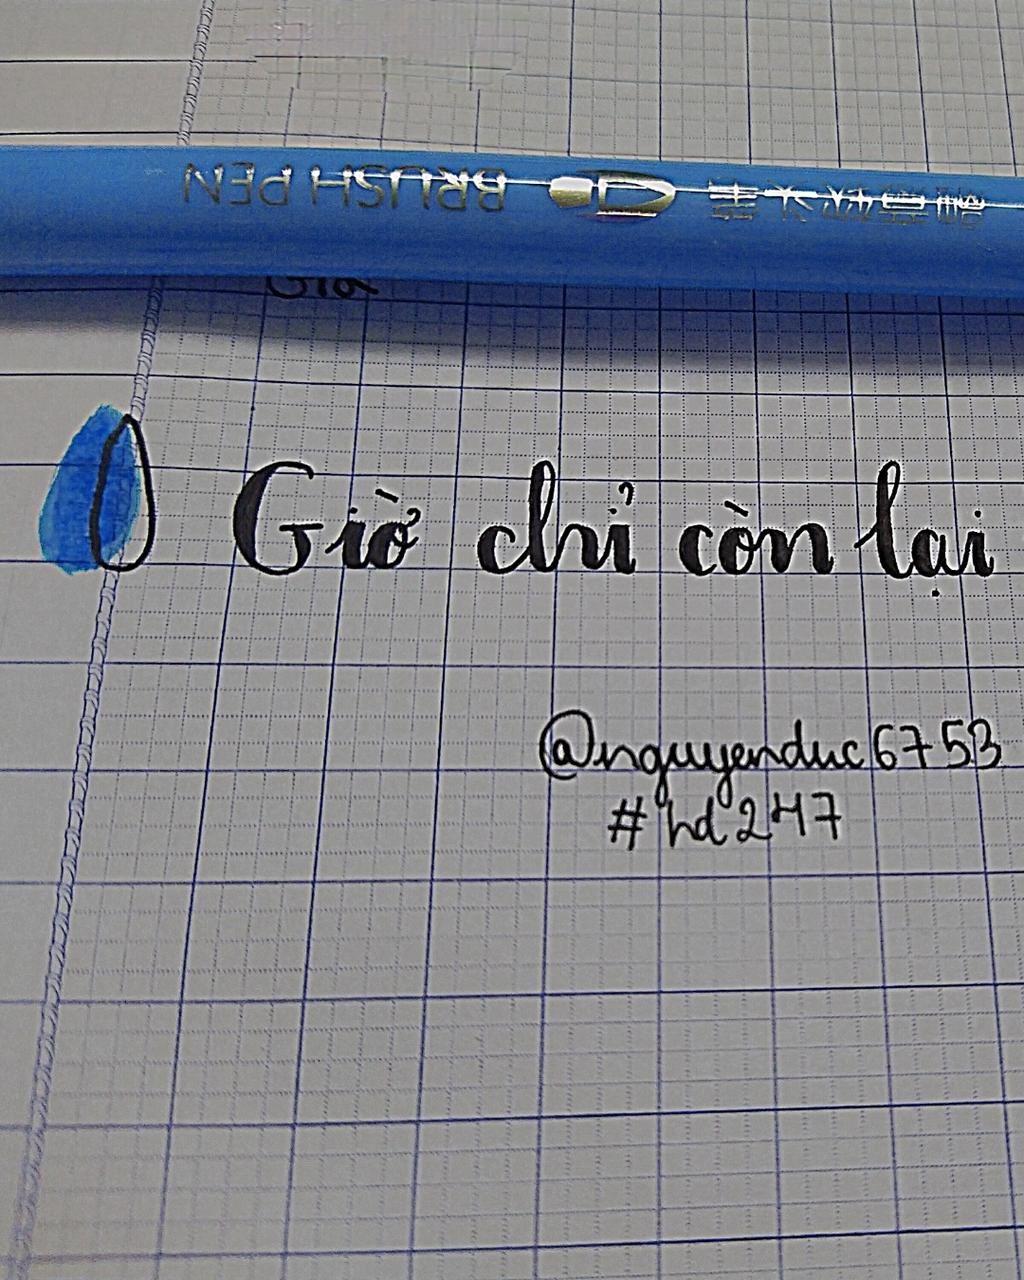 BRUSH PEN
Giờ chỉ còn lại
@nguyenduc6753
#hd247